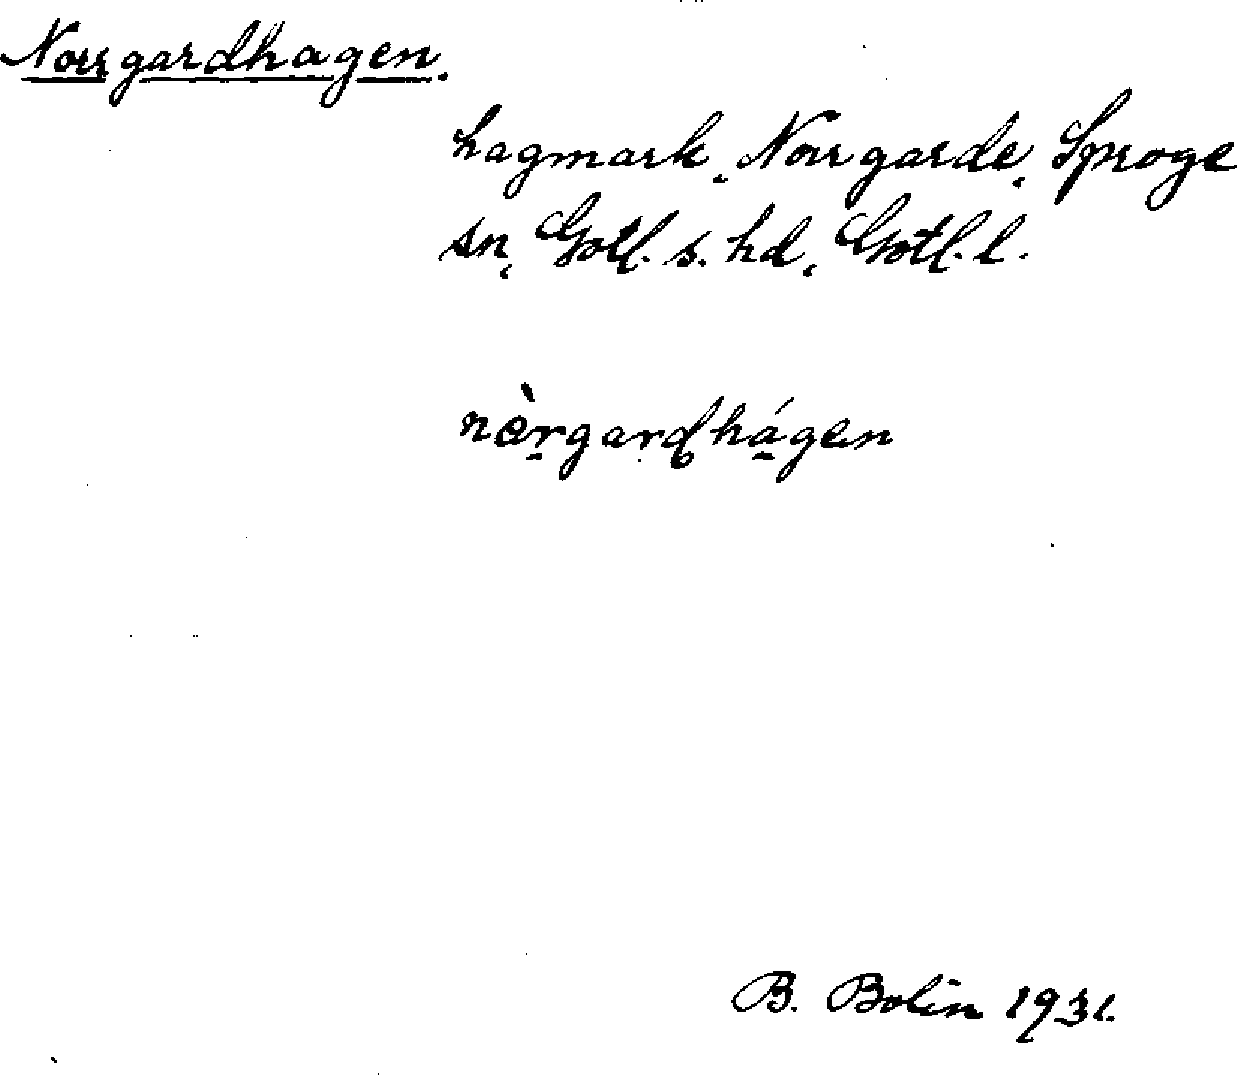 Norrgardhagen.
hagmark, Norrgarde, Sproge
sn, Gotl. s. hd, Gotl. l.
nèrgardhágen
B. Bolin 1931.